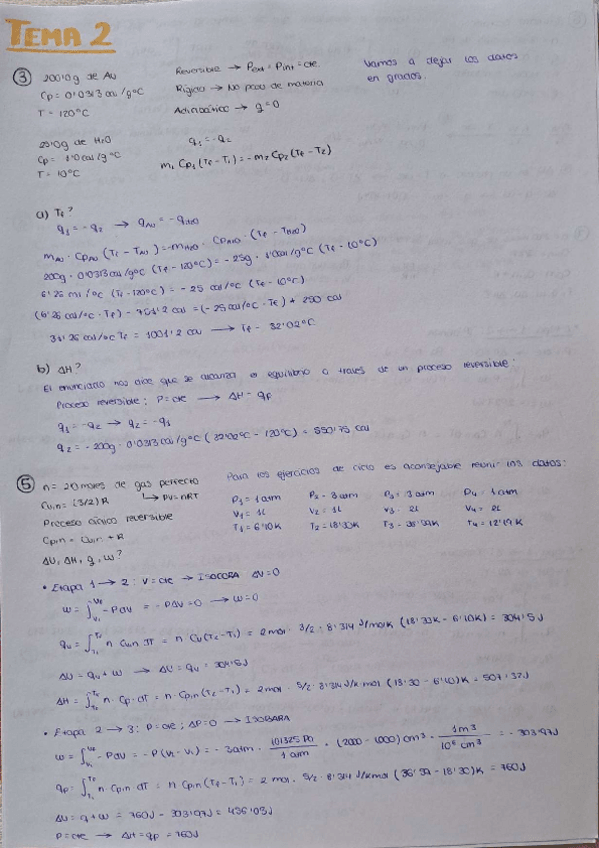 TEMA 2
③ 200'0g de Au
Cp = 0'0313 cal/g°C
T = 120°C
Reversible → Pext = Pint = cte.
Rígido → No pasa de materia
Adiabático → q = 0
Vamos a dejar los datos
en grados.
25'0g de H2O
Cp = 1'0 cal/g°C
T = 10°C
q1 = -q2
m1 Cp1 (Tf - T1) = -m2 Cp2 (Tf - T2)
a) Tf?
q1 = -q2 → qAu = -qH2O
mAu · CpAu (Tf - TAu) = -mH2O · CpH2O · (Tf - TH2O)
200g · 0'0313 cal/g°C (Tf - 120°C) = -25g · 1'0 cal/g°C (Tf - 10°C)
(Tf - 120°C) = -25 cal/°C (Tf - 10°C)
(6'26 cal/°C · Tf) - 751'2 cal = (-25 cal/°C · Tf) + 250 cal
31'26 cal/°C Tf = 1001'2 cal → Tf = 32'02°C
b) ΔH?
El enunciado nos dice que se alcanza el equilibrio a través de un proceso reversible:
Proceso reversible; P = cte → ΔH = qp
q1 = -q2 → q2 = -q1
q2 = -200g · 0'0313 cal/g°C (32'02°C - 120°C) = 550'75 cal
⑤ n = 2'0 moles de gas perfecto
Cv,n = (3/2) R
↳ PV = nRT
Proceso cíclico reversible
Cp,n = Cv,n + R
ΔU, ΔH, q, w?
Para los ejercicios de ciclo es aconsejable reunir los datos:
P1 = 1 atm P2 = 3 atm P3 = 3 atm P4 = 1 atm
V1 = 1L V2 = 1L V3 = 2L V4 = 2L
T1 = 6'10K T2 = 18'30K T3 = 36'39K T4 = 12'19K
• Etapa 1 → 2 : V = cte → ISOCORA ΔV = 0
w = ∫ -Pdv = -PΔV = 0 → w = 0
qv = ∫ n Cv,n dT = n · Cv (T2 - T1) = 2mol · 3/2 · 8'314 J/molK (18'30K - 6'10K) = 304'5J
ΔU = qv + w → ΔU = qv = 304'5J
ΔH = ∫ n · Cp · dT = n · Cp,n (T2 - T1) = 2mol · 5/2 · 8'314 J/K·mol (18'30 - 6'10)K = 507'32J
• Etapa 2 → 3 : P = cte ; ΔP = 0 → ISOBARA
w = ∫ -Pdv = -P(Vf - Vi) = -3atm · 101325 Pa / 1 atm · (2000 - 1000) cm³ · 1m³ / 10⁶ cm³ = -303'97J
qp = ∫ n · Cp,n dT = n Cp,n (Tf - Ti) = 2 mol · 5/2 · 8'314 J/Kmol (36'39 - 18'30)K = 760J
ΔU = q + w = 760J - 303'97J = 456'03J
P = cte → ΔH = qp = 760J